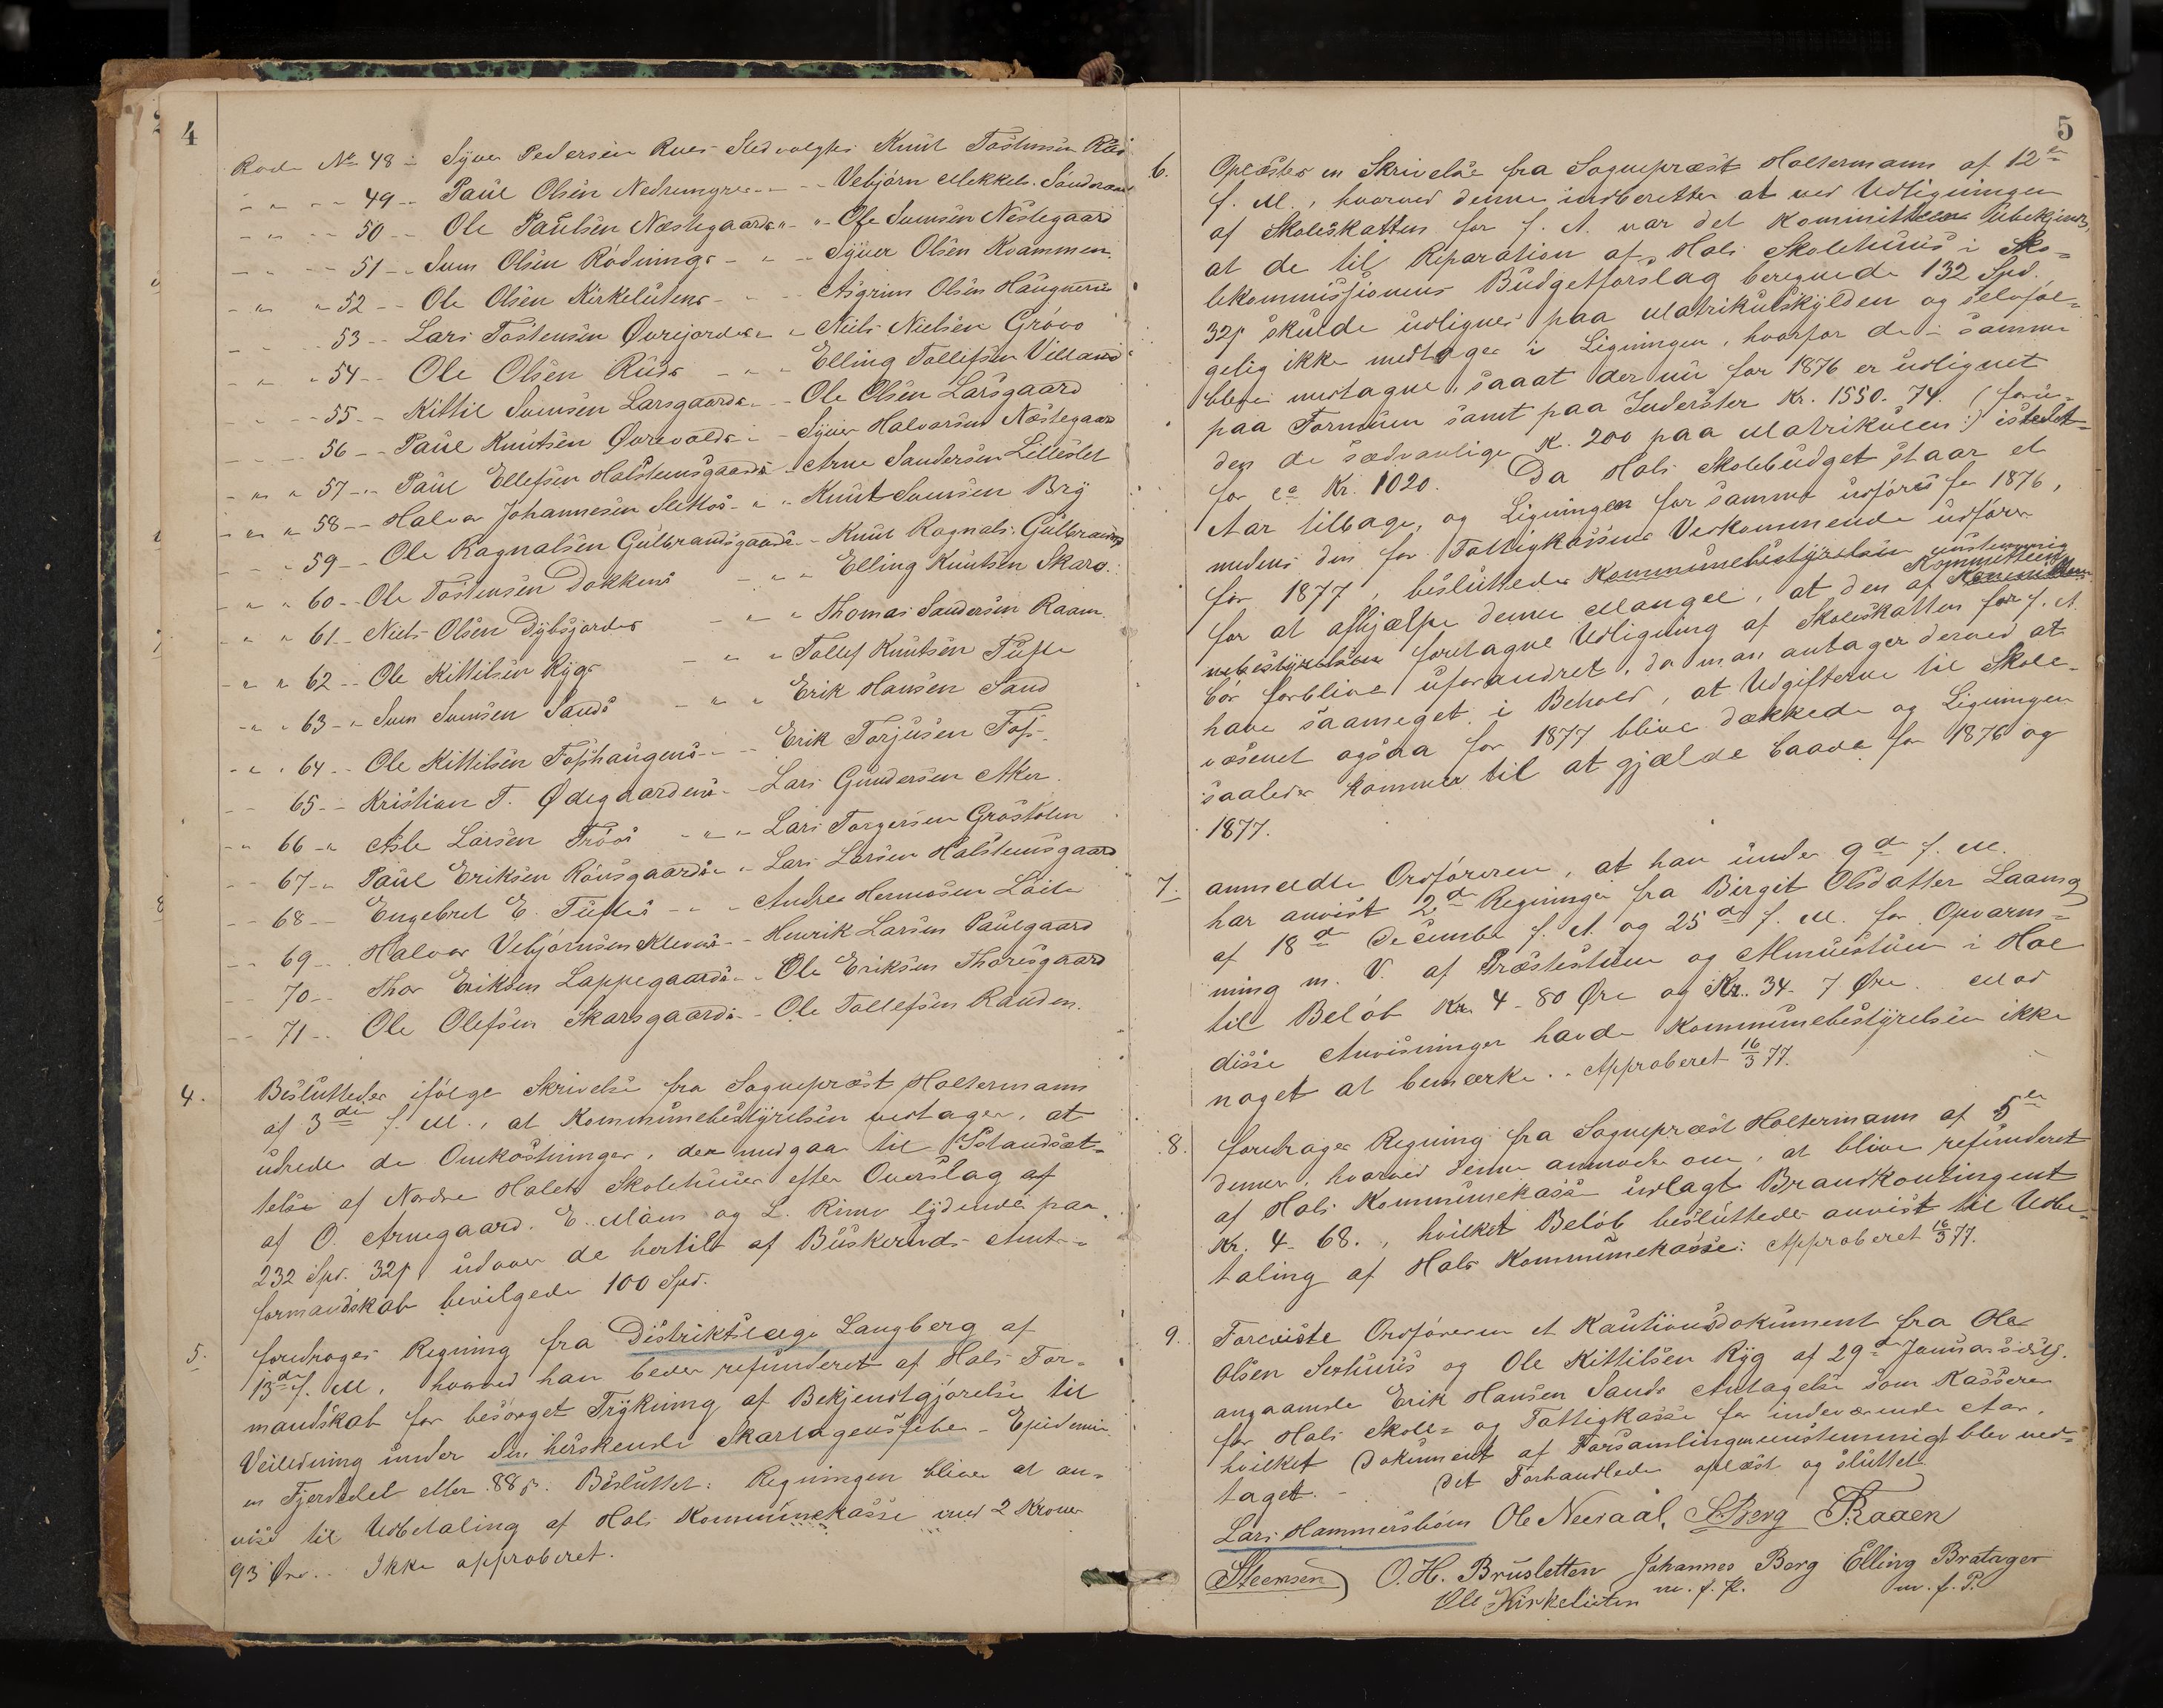 4
Rode No 48 - Syver Pedersen Rues Stedvalgtes Knut Tostensen Rud
" " 49 - Paul Olsen Nedremyres - " - Vebjørn Mekkels. Sundrand
" " 50 - Ole Paulsen Næstegaards " - Ole Svensen Nestegaard
" " 51 - Svem Olsen Rødnings - " - Syver Olsen Kvammen
" " 52 - Ole Olsen Kirkelutens - " - Asgrim Olsen Haugneræs
" " 53 - Lars Tostensen Øvrejordes " - Niels Nielsen Grøvo
" " 54 - Ole Olsen Ruds - " - Elling Tollefsen Villand
" " 55 - Kittil Svensen Larsgaards - Ole Olsen Larsgaard
" " 56 - Paul Knutsen Øvrevolds - Syver Halvorsen Næstegaard
" " 57 - Paul Ellefsen Halstensgaards - Arne Sandersen Lilleslet
" " 58 - Halvor Johannesen Slettos - " - Knut Svensen Bry
" " 59 - Ole Ragnalsen Gulbrandsgaards - Knut Ragnals. Gulbrands
" " 60 - Ole Tostensen Dokkens - " - Elling Knutsen Skaro.
" " 61 - Niels Olsen Dybsjordes - " - Thomas Sandersen Raaen
" " 62 - Ole Kittilsen Rygs - " - Tollef Knutsen Tufte
" " 63 - Svem Svensen Sands - " - Erik Hansen Sand
" " 64 - Ole Kittilsen Fosshaugens - Erik Torjusen Foss
" 65 - Kristian T. Ødegaardens - Lars Gundersen Aker.
" 66 - Asle Larsen Trøos - " - Lars Torgersen Grøstølen
" 67 - Paul Eriksen Rønsgaards " - Lars Larsen Halstensgaard
" 68 - Engebret E. Tuftes - " - Andres Hermosen Løite
" 69 - Halvor Vebjørnsen Klevens - Henrik Larsen Paulgaard
" 70 - Thor Eriksen Lappegaards - Ole Eriksen Thoresgaard
" 71 - Ole Olefsen Skarsgaards - Ole Tollefsen Randen.
4. Besluttedes ifølge Skrivelse fra Sognepræst Holtermann
af 3die f. M., at Kommunebestyrelsen vedtager, at
udrede de Omkostninger, der medgaa til Istandsæt=
telse af Nordre Hols Skolehuus efter Overslag af
af O. Arnegaard, E. Moen og L. Rimo lydende paa
232 Spd. 32 s udover de hertil af Buskeruds Amts=
formandskab bevilgede 100 Spd.
5. foredroges Regning fra Distriktslæge Langberg af
13de f. M, hvorved han beder refunderet af Hols For=
mandskab for besørget Trykning af Bekjendtgjørelse til
Veiledning under den herskende Skarlagensfeber - Epidemie
en Fjerdedel eller 88 s. Besluttet: Regningen bliver at an=
vise til Udbetaling af Hols Kommunekasse med 2 Kroner
93 Øre. - Ikke approberet.
5
6. Oplæstes en Skrivelse fra Sognepræst Holtermann af 12te
f. M., hvorved denne indberetter at ved Udligningen
af Skoleskatten for f. A. var det Kommitteen ubekjendt,
at de til Reparation af Hols Skolehuus i Sko=
lekommissionens Budgetforslag beregnede 132 Spd.
32 s skulde udlignes paa Matrikulskylden og selvføl=
gelig ikke medtages i Ligningen, hvorfor de i samme
bleve medtagne, saaat der nu for 1876 er udlignet
paa Formuen samt paa Indtægter Kr. 1550. 74. (foru=
den de sædvanlige K. 200 paa Matrikulen:) istedet=
for ca Kr. 1020. Da Hols Skolebudget staar et
Aar tilbage, og Ligningen for samme udføres for 1876,
medens den for Fattigkassens Vedkommende udføres
for 1877, besluttedes Kommunebestyrelsen enstemmig
for at afhjælpe denne Mangel, at den af Kommitteen
nebestyrelsen foretagne Udligning af Skoleskatten for f. A.
bør forblive uforandret, da man antager derved at
have saameget i Behold, at Udgifterne til Skole=
væsenet ogsaa for 1877 blive dækkede og Ligningen
saaledes kommer til at gjælde baade for 1876 og
1877.
7. anmeldte Ordføreren, at han under 9de f. M.
har anvist 2de Regninger fra Birgit Olsdatter Laang
af 18de December f. A. og 25de f. M. for Opvarm=
ning m. V. af Præstestuen og Almuestuen i Hol
til Beløb Kr. 4 - 80 Øre og Kr. 34 - 7 Øre. Mod
disse Anvisninger havde Kommunebestyrelsen ikke
noget at bemærke. - Approberet 16/3 77.
8. foredroges Regning fra Sognepræst Holtermann af 5te
dennes, hvorved denne anmoder om, at blive refunderet
af Hols Kommunekasse udlagt Brandkontingent
Kr. 4 - 68., hvilket Beløb besluttedes anvist til Udbe=
taling af Hols Kommunekasse: Approberet 16/3 77.
9. Foreviste Ordføreren et Kautionsdokument fra Ole
Olsen Serhuus og Ole Kittilsen Ryg af 29de Januar sidstl.
angaaende Erik Hansen Sands Antagelse som Kasserer
for Hols Skole- og Fattigkasse for indeværende Aar,
hvilket Dokument af Forsamlingen enstemmigt blev ved=
taget. - Det Forhandlede oplæst og sluttet.
Lars Hammersbøen Ole Neeraal, S. Berg T. Raaen
Steensen O. H. Brusletten Johannes Berg Elling Bratager
Ole Kirkeluten m. f. P. m. f. P.